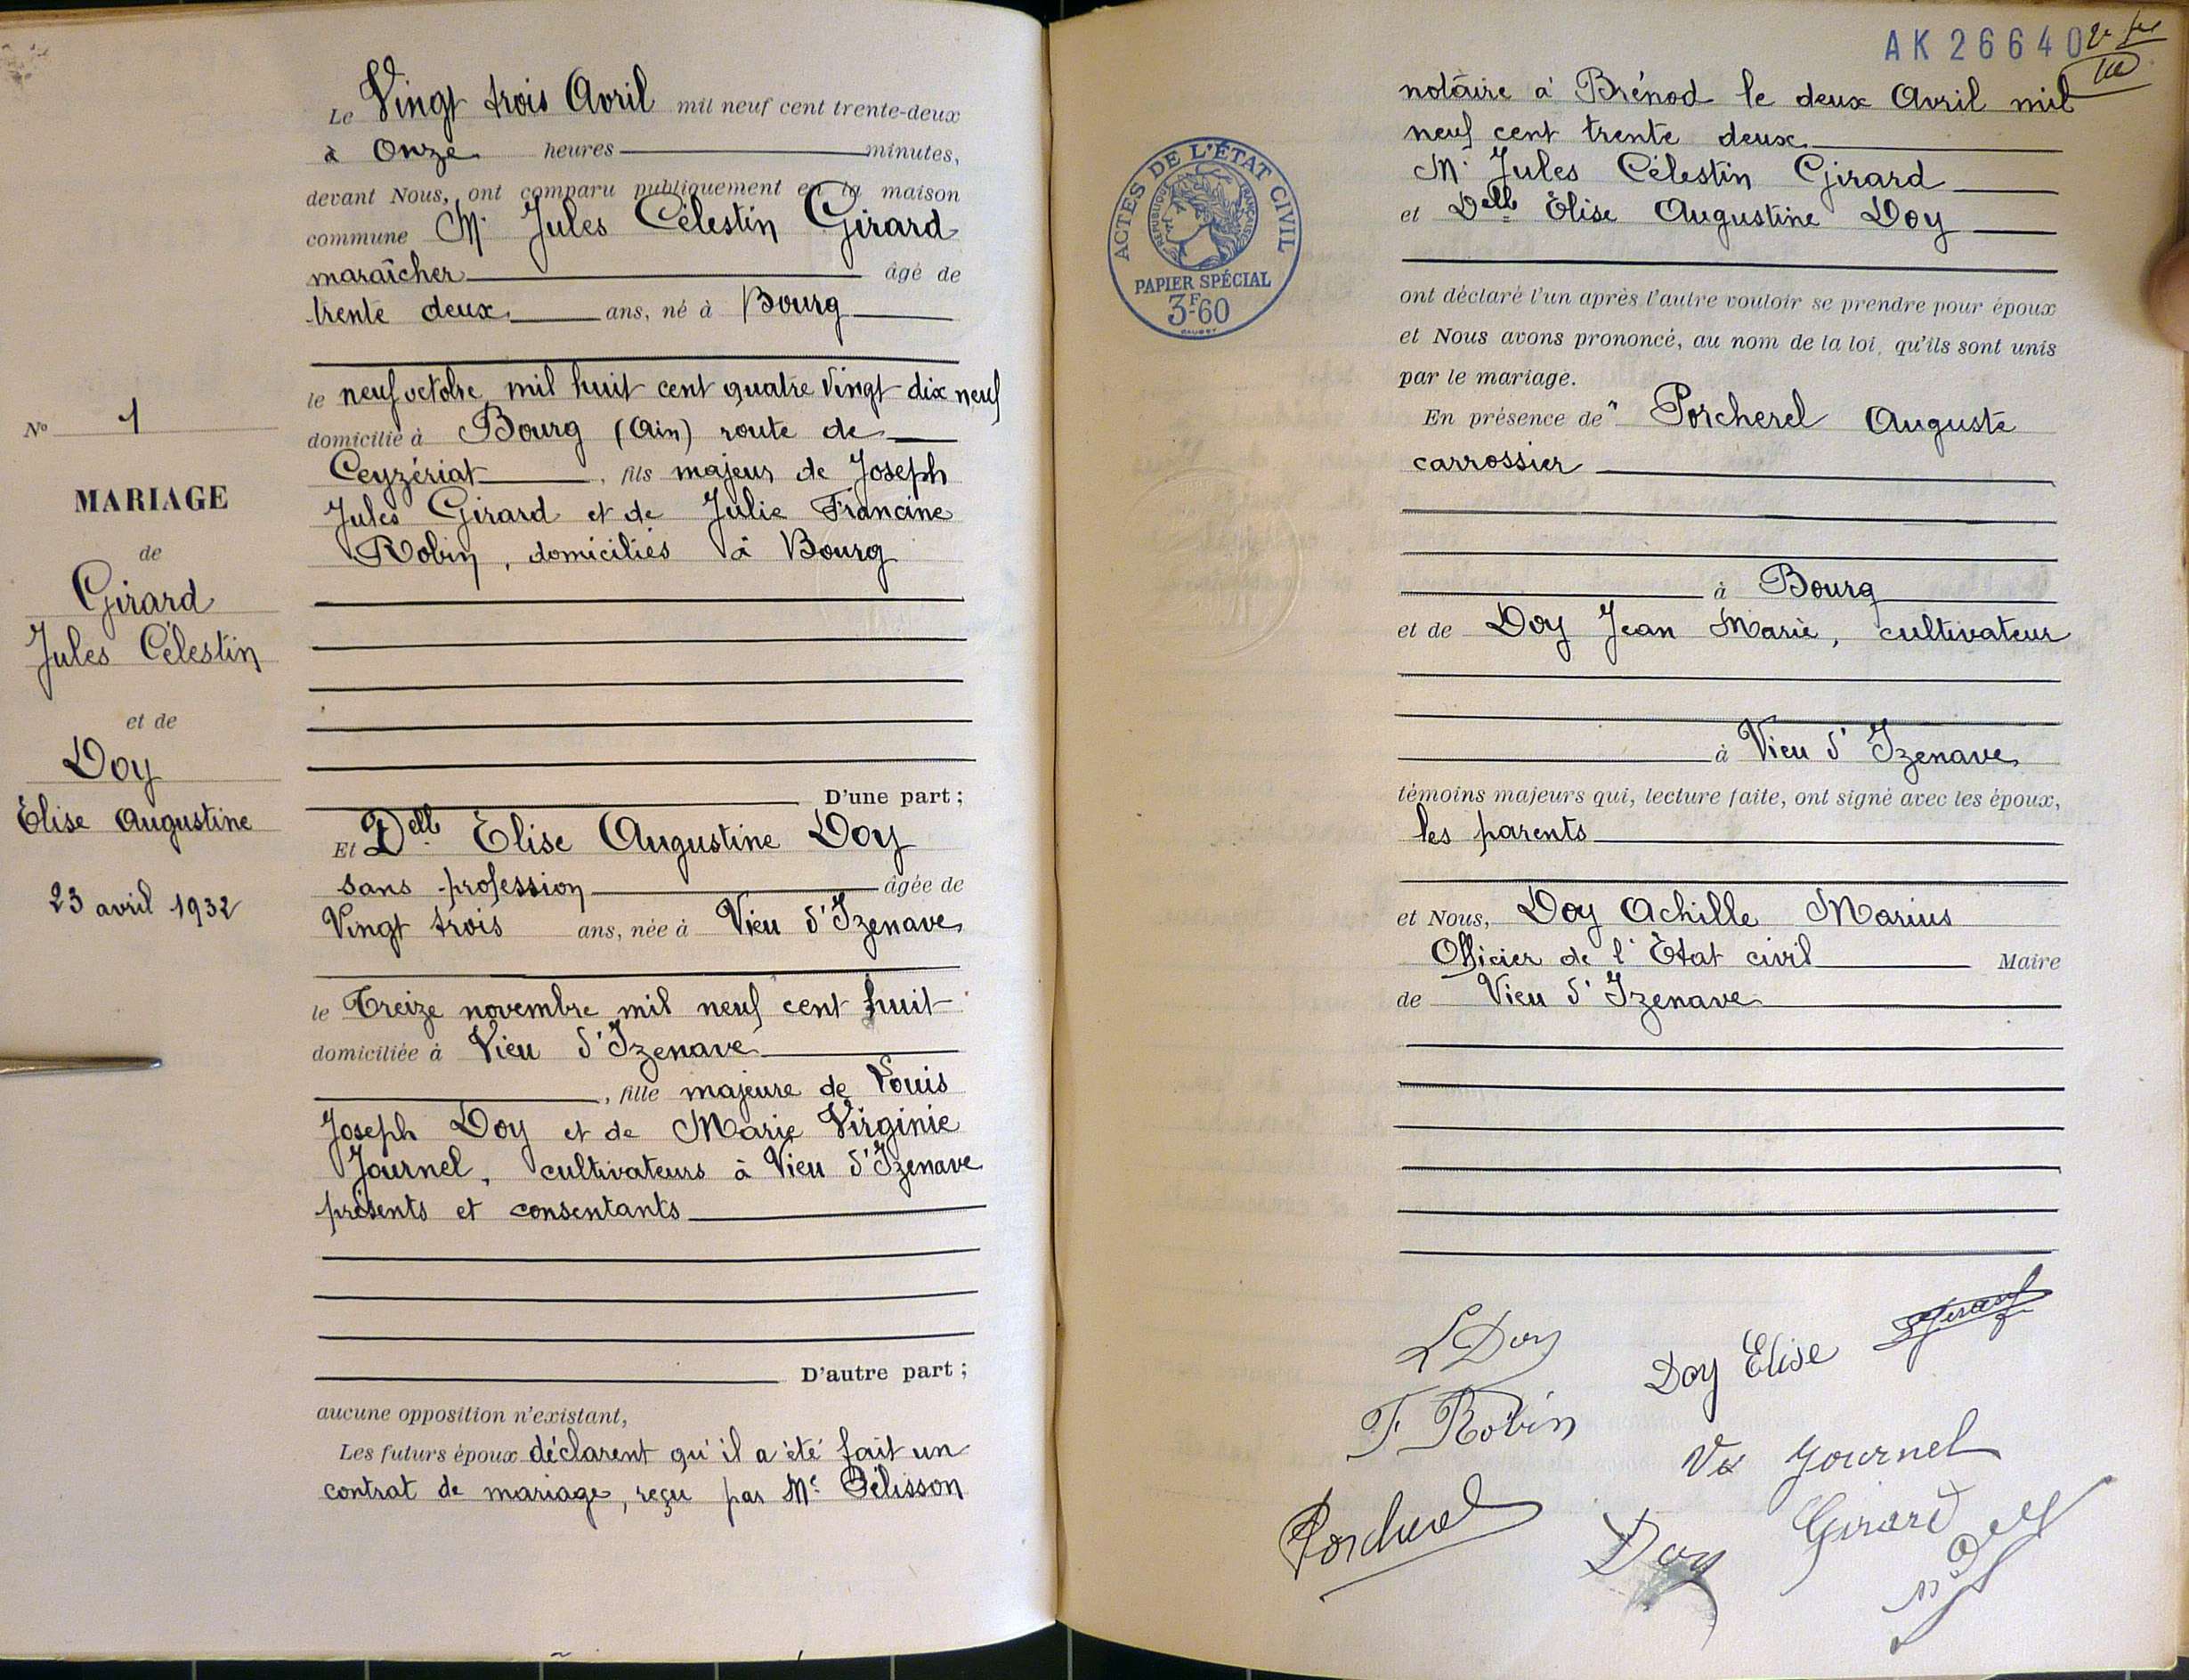 N° 1
MARIAGE
de
Girard
Jules Célestin
et de
Doy
Élise Augustine
23 avril 1932
Le Vingt trois Avril mil neuf cent trente-deux
à Onze heures minutes,
devant Nous, ont comparu publiquement en la maison
commune M. Jules Célestin Girard
maraîcher âgé de
trente deux ans, né à Bourg
le neuf octobre mil huit cent quatre vingt dix neuf
domicilié à Bourg (Ain) route de
Ceyzériat, fils majeur de Joseph
Jules Girard et de Julie Francine
Robin, domiciliés à Bourg
D'une part ;
Et Delle Élise Augustine Doy
sans profession âgée de
Vingt trois ans, née à Vieu d'Izenave
le Treize novembre mil neuf cent huit
domiciliée à Vieu d'Izenave
, fille majeure de Louis
Joseph Doy et de Marie Virginie
Journel, cultivateurs à Vieu d'Izenave
présents et consentants
D'autre part ;
aucune opposition n'existant,
Les futurs époux déclarent qu'il a été fait un
contrat de mariage, reçu par Me Pélisson
AK 26640
notaire à Brénod le deux Avril mil
neuf cent trente deux
M. Jules Célestin Girard
et Delle Élise Augustine Doy
ACTES DE L'ÉTAT CIVIL
RÉPUBLIQUE FRANÇAISE
PAPIER SPÉCIAL
3F60
ont déclaré l'un après l'autre vouloir se prendre pour époux
et Nous avons prononcé, au nom de la loi, qu'ils sont unis
par le mariage.
En présence de Porcherel Auguste
carrossier
à Bourg
et de Doy Jean Marie, cultivateur
à Vieu d'Izenave
témoins majeurs qui, lecture faite, ont signé avec les époux,
les parents
et Nous, Doy Achille Marius
Officier de l'État civil Maire
de Vieu d'Izenave
L Doy
Doy Elise
F Robin
Ve Journel
Porcherel
Doy
Girard